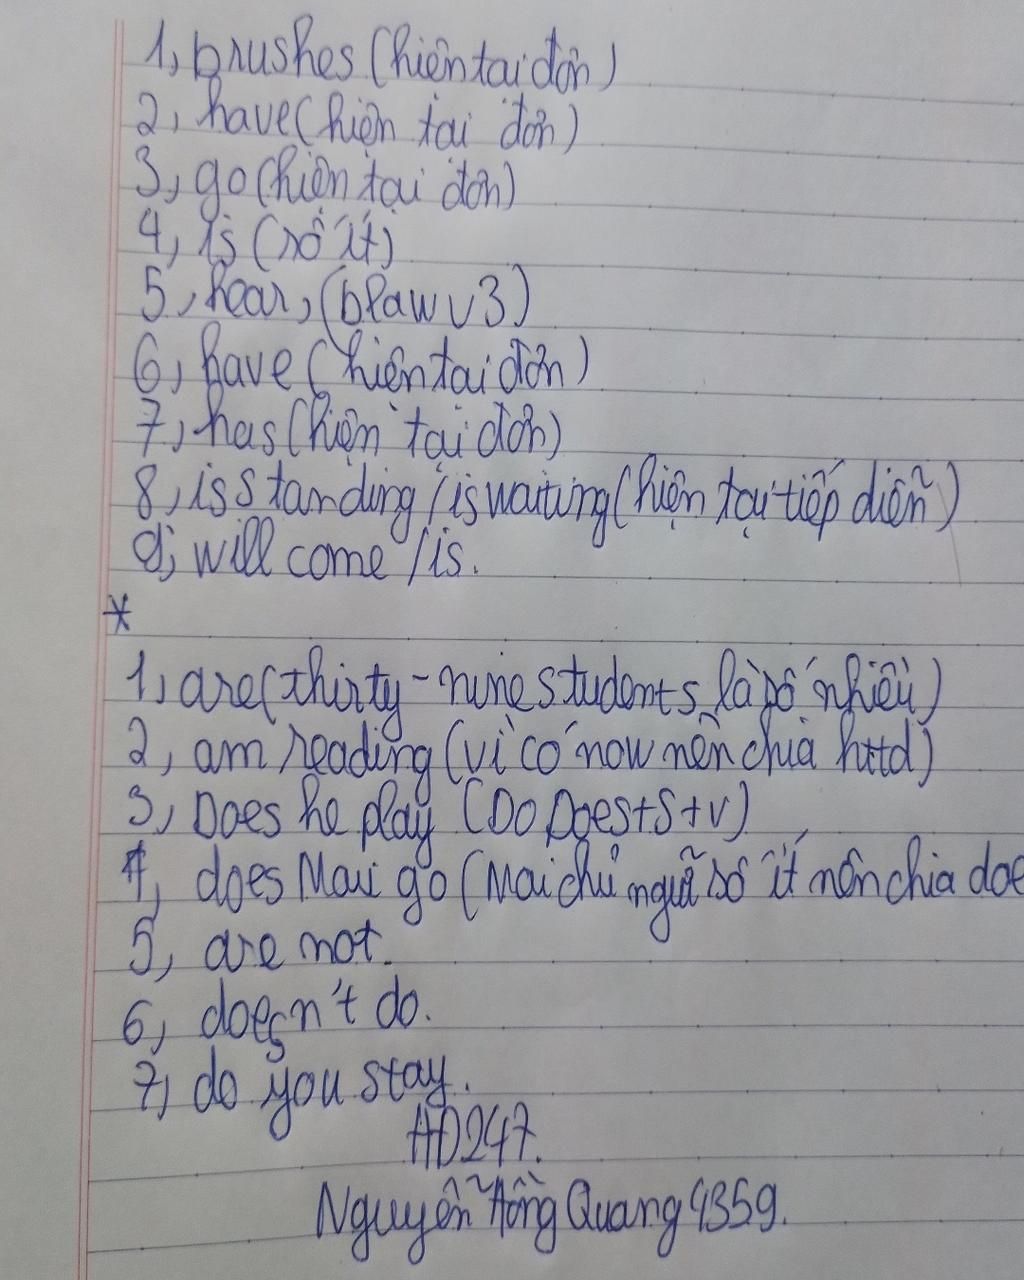 1, brushes (hiện tại đơn)
2, have (hiện tại đơn)
3, go (hiện tại đơn)
4, is (số ít)
5, hear, (blaw v3)
6, have (hiện tại đơn)
7, has (hiện tại đơn)
8, is standing / is waiting (hiện tại tiếp diễn)
9, will come / is.
*
1, are (thirty-nine students là số nhiều)
2, am reading (vì có now nên chia httd)
3, Does he play (Do Does + S + V)
4, does Mai go (Mai chủ ngữ số ít nên chia doe
5, are not.
6, doesn't do.
7, do you stay.
HD247.
Nguyễn Hồng Quang 9359.